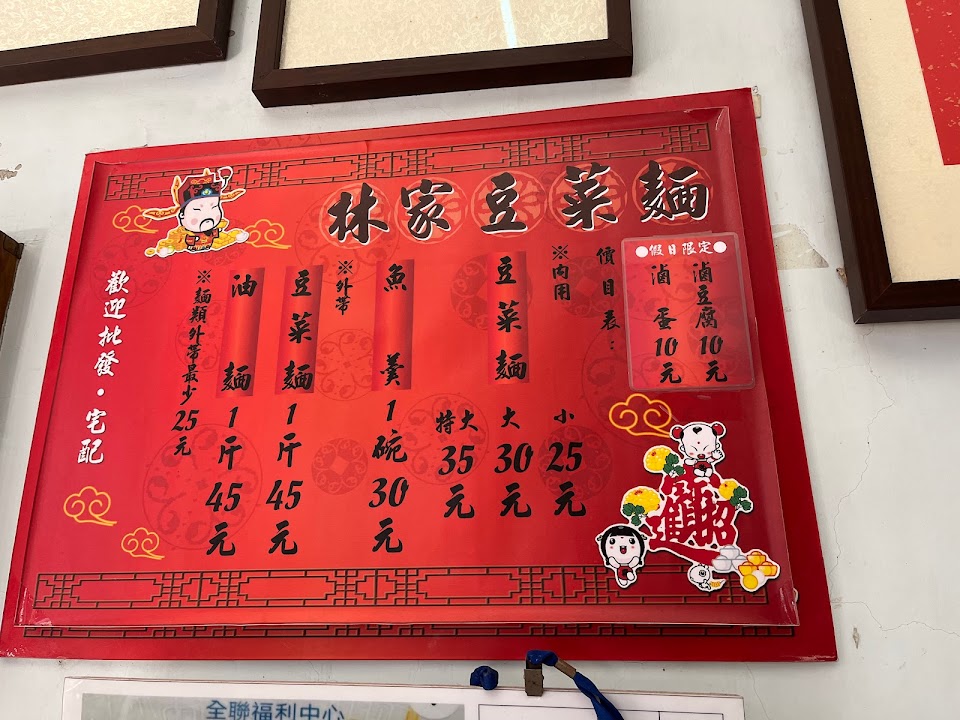 林家豆菜麵
●假日限定●
滷豆腐10元
滷蛋10元
價目表:
※內用
豆菜麵
小25元
大30元
特大35元
魚羹
1碗30元
※外帶
豆菜麵
1斤45元
油麵
1斤45元
※麵類外帶最少25元
歡迎批發・宅配
招財進寶
全聯福利中心